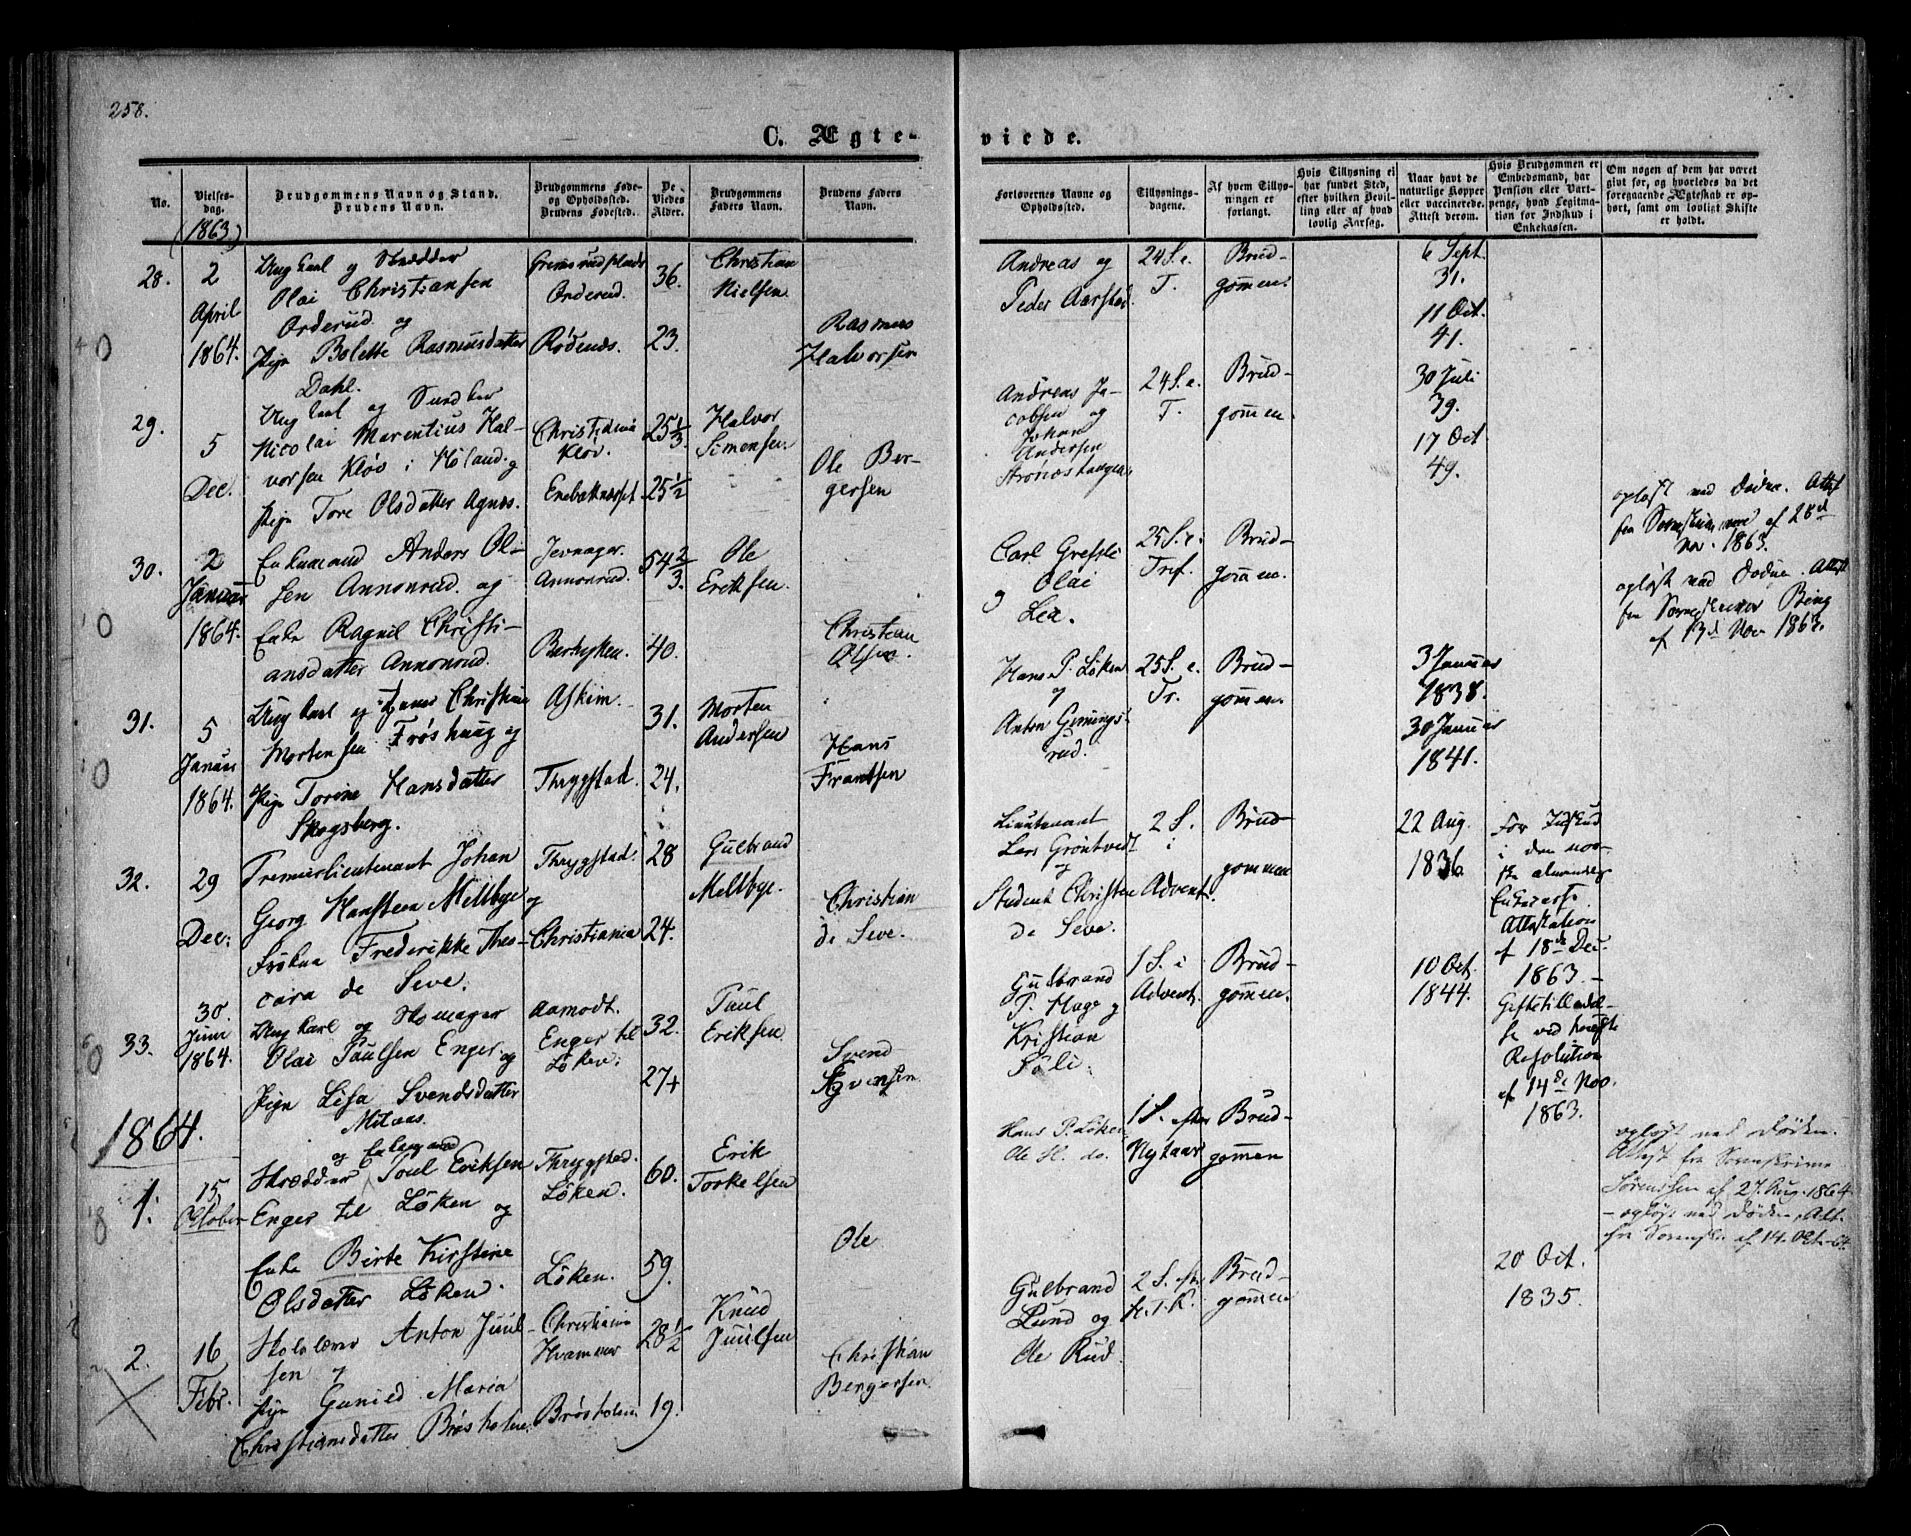 258.
C. Ægte-
viede.
No.
Vielses-
dag.
Brudgommens Navn og Stand.
Brudens Navn.
Brudgommens Føde-
og Opholdssted.
Brudens Fødested.
De
Viedes
Alder.
Brudgommens
Faders Navn.
Brudens Faders
Navn.
Forlovernes Navne og
Opholdssted.
Tillysnings-
dagene.
Af hvem Tillys-
ningen er
forlangt.
Hvis Tillysning ei
har fundet Sted,
efter hvilken Bevil-
ling eller af hvad
lovlig Aarsag.
Naar havt de
naturlige Kopper
eller vaccinerede.
Attest derom.
Hvis Brudgommen er
Embedsmand, har
Pension eller Vart-
penge, hvad Legitima-
tion for Indskud i
Enkekassen.
Om nogen af dem har været
givt før, og hvorledes da det
foregaaende Ægteskab er op-
hørt, samt om lovligt Skifte
er holdt.
(1863)
28.
2
April
1864.
Ungkarl og Skrædder
Olai Christiansen
Orderud og
Pige Bolette Rasmusdatter
Dahl.
Orderud.
Rødenæs.
36.
23.
Christian
Nielsen.
Rasmus
Halvorsen
Andreas og
Peder Aarstad.
24 S. e.
T.
Brud-
gommen.
6 Sept.
31.
11 Oct.
41.
29.
5
Dec.
Ungkarl og
Nicolai Marentius Hal-
vorsen Kløv i Høland og
Pige Tore Olsdatter Agnæs.
Christiania
Kløv.
Enebaknæsset
25 1/3
25 1/2
Halvor
Simensen.
Ole Ber-
gersen
Andreas Ja-
cobsen og
Johan
Andersen
24 S. e.
T.
Brud-
gommen.
30 Juli
39.
17 Oct
49.
30.
2
Januar
1864.
Enkemand Anders Ol-
sen Annonrud og
Enke Ragnil Christi-
ansdatter Annonrud.
Jevnager.
Annonrud.
54 2/3.
40.
Ole
Eriksen.
Christian
Olsen.
Carl Grefsli
og Olai
Lea.
25 S. e.
Tref.
Brud-
gommen.
opløst ved Døden. Attest
fra Sorenskriver af 28d
Nov. 1863.
opløst ved Døden. Attest
fra Sorenskriver Bing
af 13d Nov 1863.
31.
5
Januar
1864.
Ungkarl og Hans Christian
Mortensen Frøshaug og
Pige Torine Hansdatter
Skogsberg.
Askim.
Thrygstad.
31.
24.
Morten
Andersen
Hans
Frantsen
Hans P. Løken
og
Anton
25 S. e.
Tr.
Brud-
gommen.
3 Januar
1838.
30 Januar
1841.
32.
29
Dec.
Premierlieutenant Johan
Georg Hansteen Meltbye og
Frøken Frederikke Theo-
cara de Seve.
Thrygstad.
Christiania
28
24.
Gulbrand
Meltbye.
Christian
de Seve.
Lieutenant
Lars Grøntvedt
og
Student Christen
de Seve.
2 S.
i
Advent.
Brud-
gommen
22 Aug.
1836.
For Indskud
i den nor-
ske almindelige
Enkecasse
Attestation
af 18de Dec.
1863.-
Giftetilladel-
se ved høieste
Resolution
af 14de Nov.
1863.
33.
30.
Juni
1864.
Ungkarl og Skomager
Olai Paulsen Enger og
Pige Lisa Svendsdatter
Aamodt.
Enger til
Løken.
32.
27 +
Paul
Eriksen.
Svend
Gulbrand
P. Hage og
Kristian
1 S. i
Advent.
Brud-
gommen.
10 Oct.
1844.
1864.
1.
15
October
og Enkemand
Skrædder Poul Eriksen
Enger til Løken og
Enke Birte Kirstine
Olsdatter Løken.
Thrygstad.
Løken.
Løken.
60.
59.
Erik
Torkelsen
Ole
Hans P. Løken
Ole H. do.
1 S. efter
Nytaar
Brud-
gommen
opløst ved Døden.
Attest fra Sorenskriver
Sørenssen af 27. Aug. 1864
- opløst ved Døden, Att.
fra Sorenskr. af 14. Oct. 64.
2.
16
Febr.
Skolelærer Anton Juul-
sen og
Pige Gunild Maria
Christiansdatter Brøsholen.
Christiania
Brøsholen
28 1/2
19.
Knud
Juulsen
Christian
Bergersen.
Gulbrand
Lund og
Ole Rud.
2 S. eft.
H.T.K.
Brud-
gommen
20 Oct.
1835.